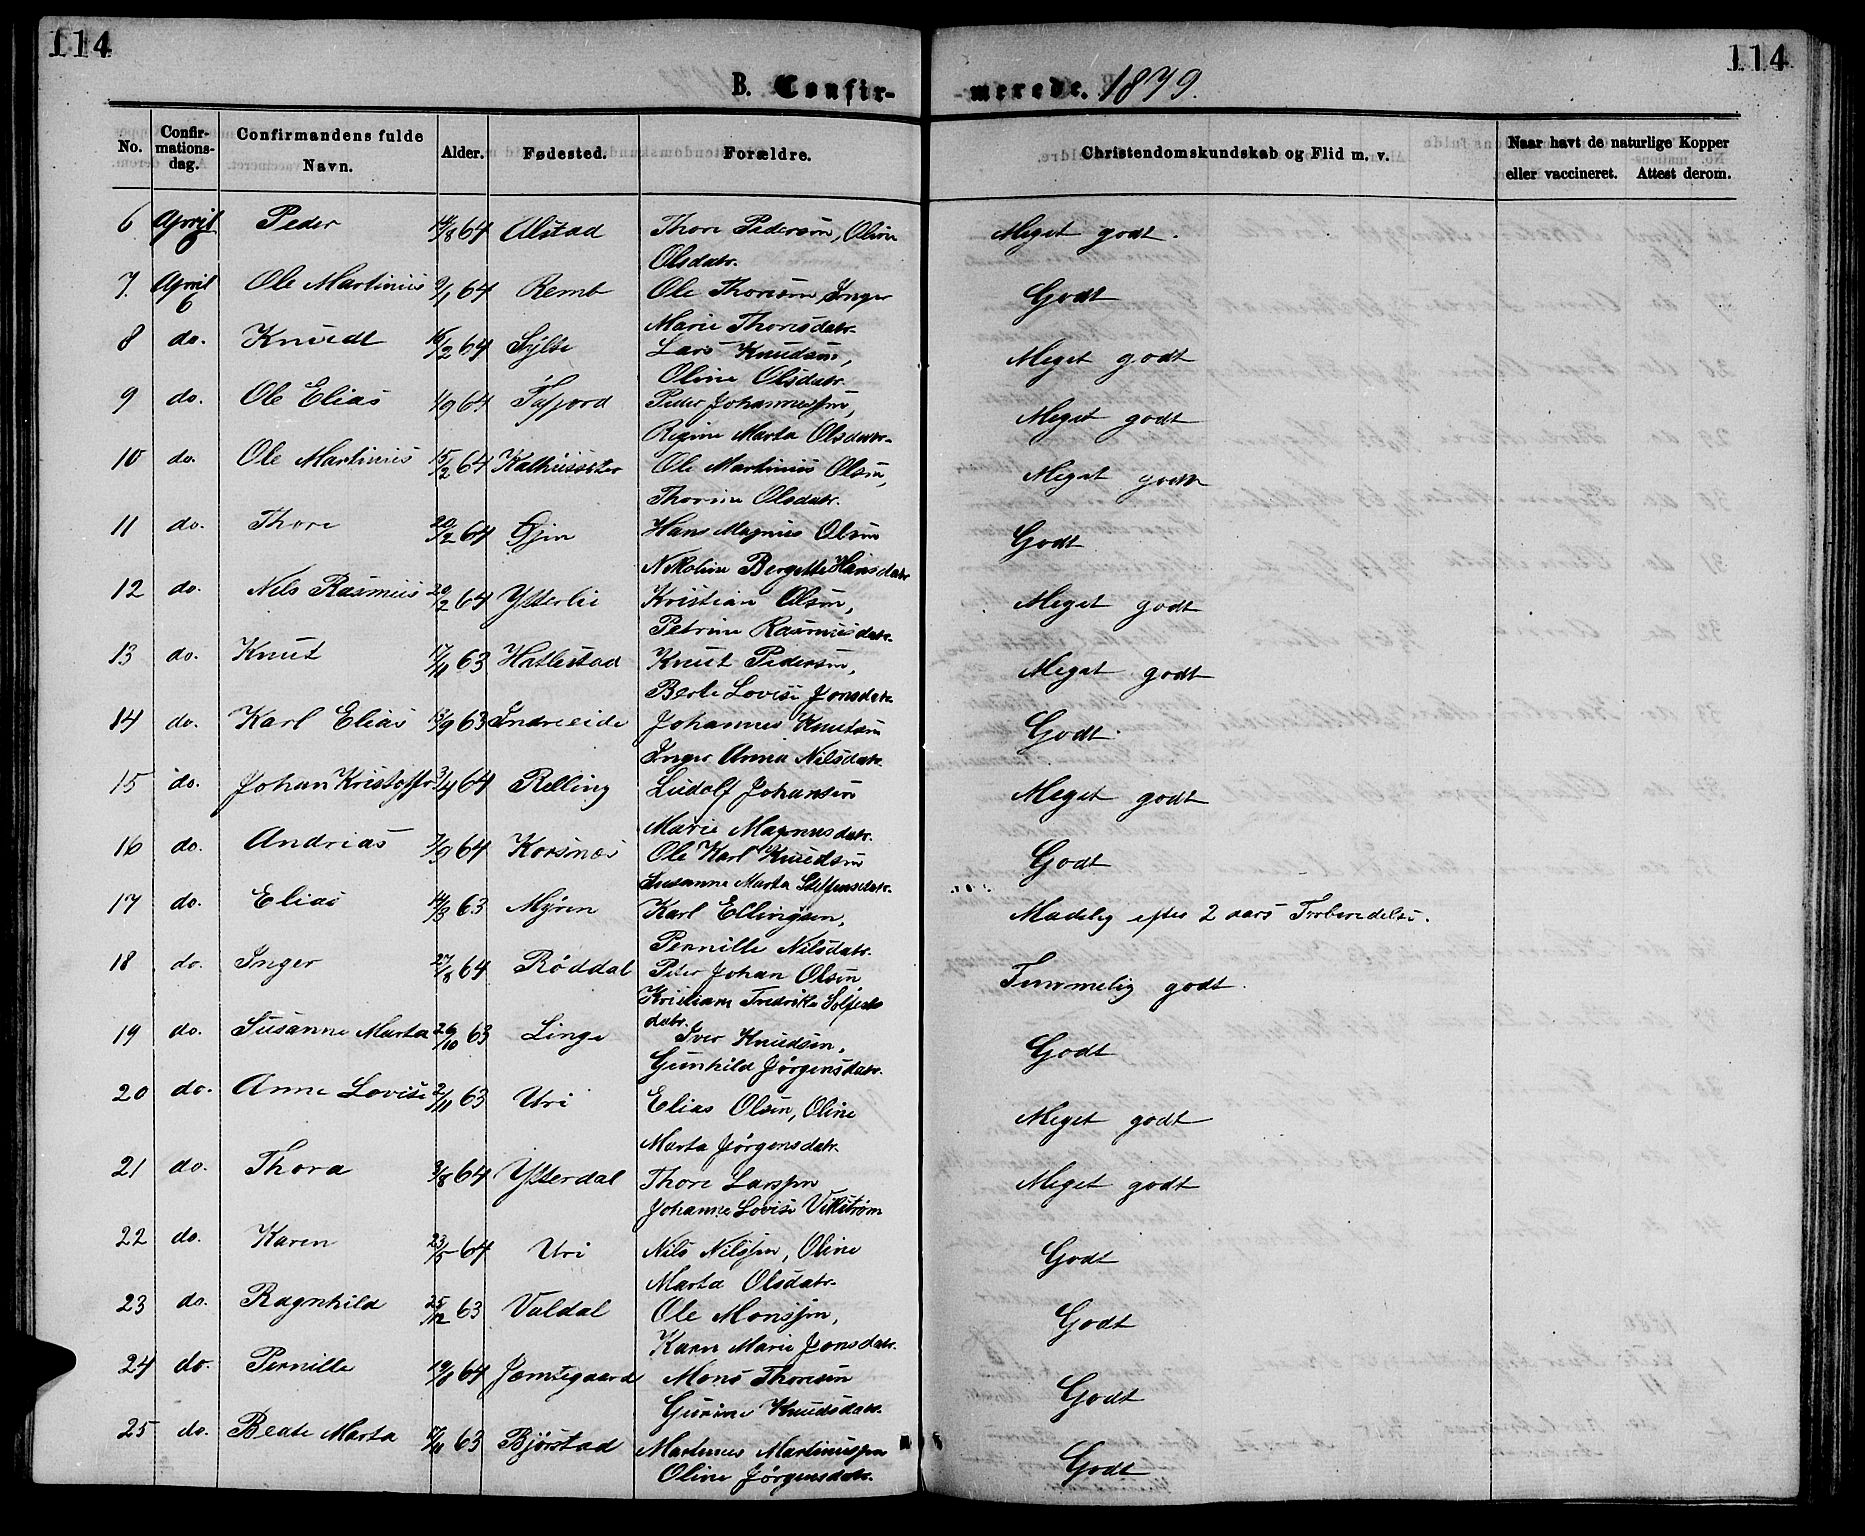 114
114
B. Confir-
merede. 1879.
No.
Confir-
mations-
dag.
Confirmandens fulde
Navn.
Alder.
Fødested.
Forældre.
Christendomskundskab og Flid m. v.
Naar havt de naturlige Kopper
eller vaccineret. Attest derom.
6 April 6 Peder /8 64 Alstad Thore Pedersen, Oline Meget godt.
Olsdatr.
7. April 6 Ole Martinus /1 64 Remb Ole Thoresen Inger Godt
Marie Thoresdatr.
8 do. Knudt 16/2 64 Sylte Lars Knudsen, Meget godt
Oline Olsdatr.
9 do. Ole Elias /9 64 Tafjord Peder Johannessen, Meget godt
Regine Marta Olsdatr.
10 do. Ole Martinus 15/2 64 Kalhussæter Ole Martinus Olsen, Meget godt
Thorine Olsdatr.
11 do. Thore 20/2 64 Øjen Hans Magnus Olsen Godt
Nikoline Bergette Hansdatr.
12 do. Nils Rasmus 20/2 64 Ytterlie Kristian Olsen, Meget godt
Petrine Rasmusdatr.
13 do. Knut 17/11 63 Hatlestad Knut Pedersen, Meget godt
Berte Lovise Jonsdatr.
14 do. Karl Elias 13/9 63 Indreeide Johannes Knutsen Godt.
Inger Anna Nilsdatr.
15 do. Johan Kristoffer 3/4 64 Relling Ludolf Johansen Meget godt
Marie Magnusdatr.
16 do. Andrias 7/9 64 Korsnæs Ole Karl Knudsen Godt
Susanne Marta Steffensdatr.
17 do. Elias 14/3 63 Myren Karl Ellingsen, Madelig efter 2 aars Forberedelse.
Pernille Nilsdatr.
18 do. Inger 27/8 64 Røddal Peter Johan Olsen Temmelig godt.
Kristiane Fredrikke
datr.
19 do. Susanne Marta 26/10 63 Linge Iver Knudsen, Godt
Gunhild Jørgensdatr.
20 do. Anne Lovise 2/11 63 Uri Elias Olsen, Oline Meget godt
Marta Jørgensdatr.
21 do. Thora 3/8 64 Ytterdal Thore Larssen Meget godt
Johanne Lovise Vikstrøm
22 do. Karen 23/5 64 Uri Nils Nilssen, Oline Godt
Marta Olsdatr.
23 do. Ragnhild 25/12 63 Valdal Ole Monssen, Godt
Karen Marie Jonsdatr.
24 do. Pernille 19/8 64 Jemtegaard Mons Thoresen Godt
Gurine Knudsdatr.
25 do. Beate Marta /11 63 Bjørstad Martinus Martinussen Godt
Oline Jørgensdatr.